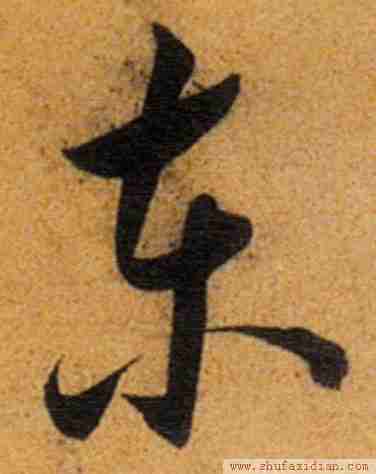 东
www.shufazidian.com